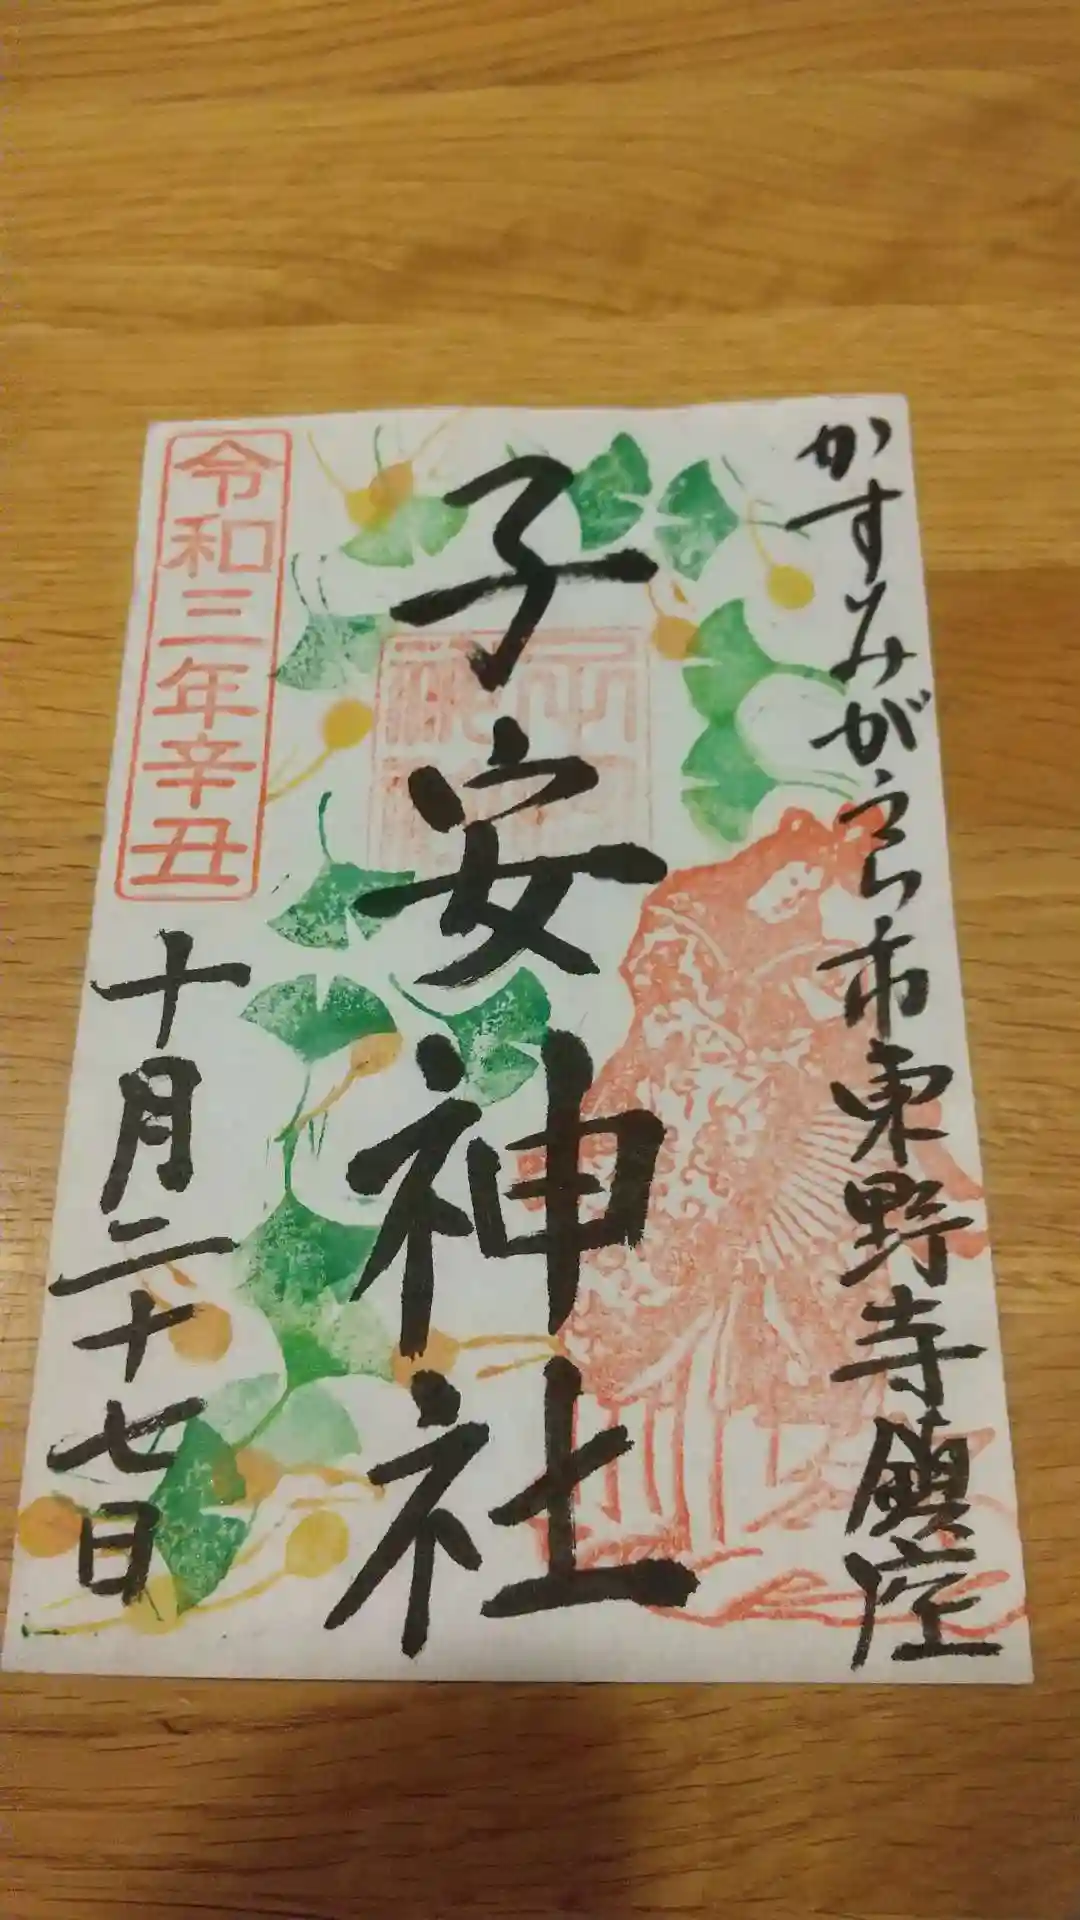 かすみがうら市東野寺鎮座
子安神社
令和三年辛丑
十月二十七日